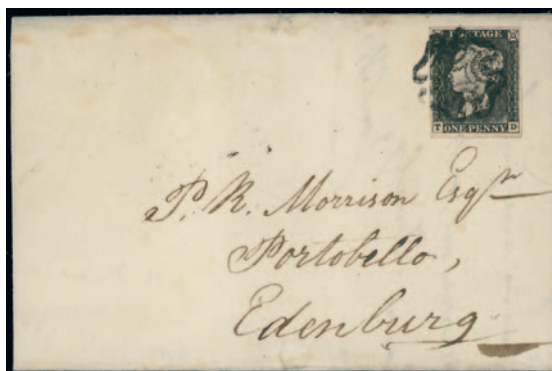 POSTAGE
T ONE PENNY D
P. R. Morrison Esqr
Portobello,
Edenburg